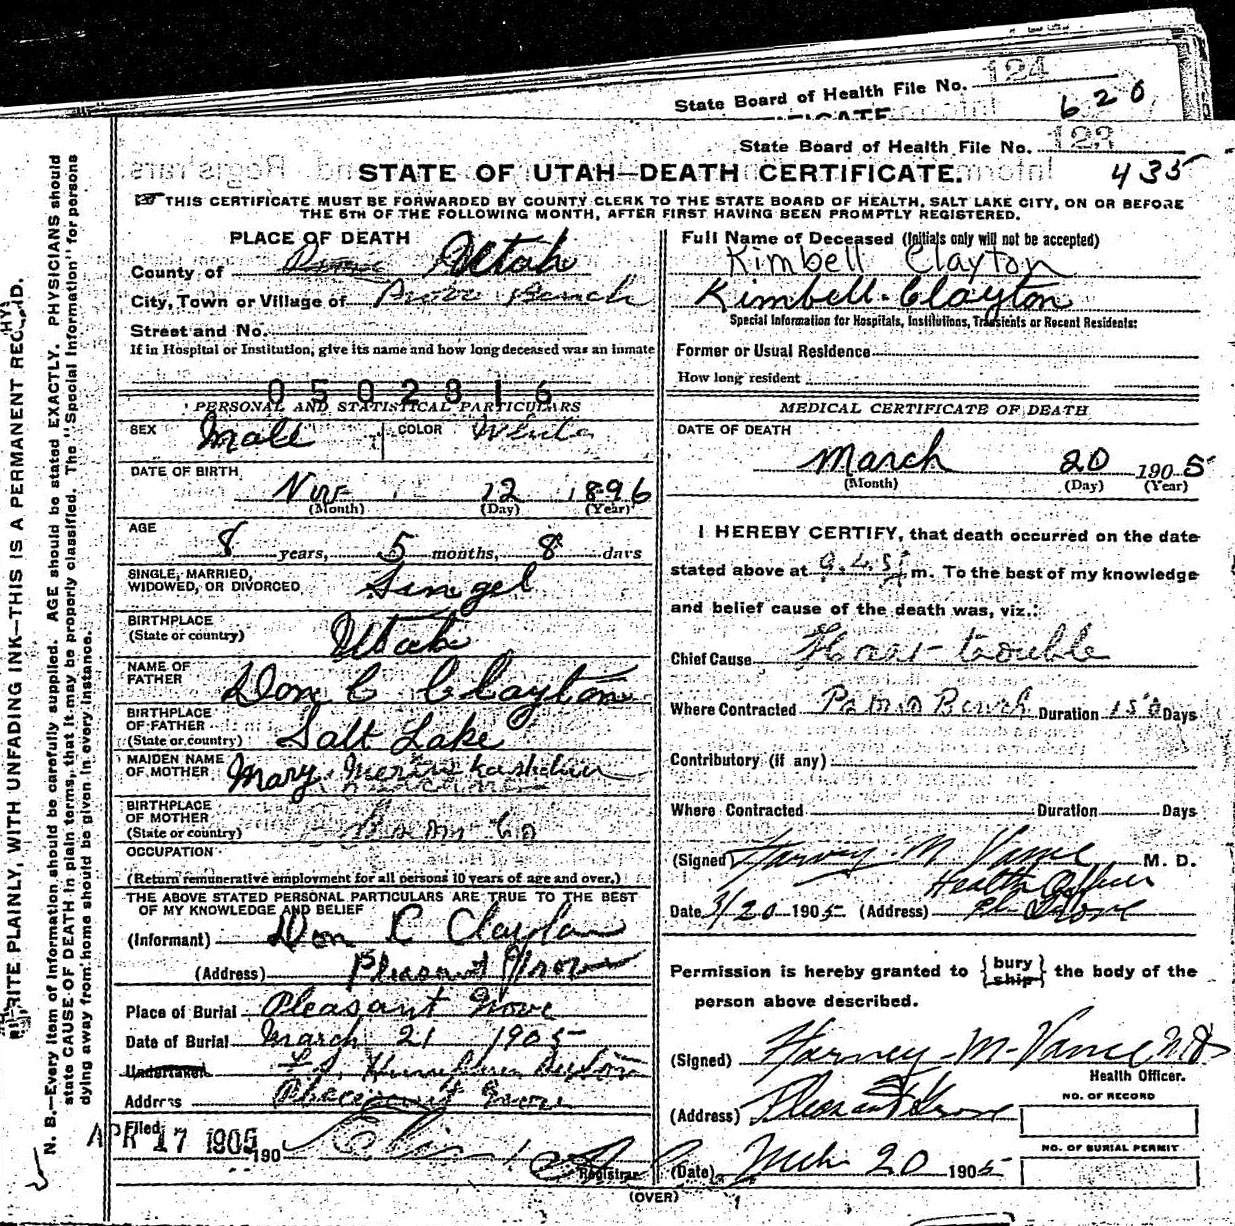 State Board of Health File No. 124
620
State Board of Health File No. 123
435
STATE OF UTAH—DEATH CERTIFICATE.
THIS CERTIFICATE MUST BE FORWARDED BY COUNTY CLERK TO THE STATE BOARD OF HEALTH, SALT LAKE CITY, ON OR BEFORE
THE 5TH OF THE FOLLOWING MONTH, AFTER FIRST HAVING BEEN PROMPTLY REGISTERED.
PLACE OF DEATH
County of Utah
City, Town or Village of Provo Bench
Street and No.
If in Hospital or Institution, give its name and how long deceased was an inmate
0502816
PERSONAL AND STATISTICAL PARTICULARS
SEX Male COLOR White
DATE OF BIRTH
Nov 12 1896
(Month) (Day) (Year)
AGE
8 years, 5 months, 8 days
SINGLE, MARRIED,
WIDOWED, OR DIVORCED Singel
BIRTHPLACE
(State or country) Utah
NAME OF
FATHER Don C Clayton
BIRTHPLACE
OF FATHER
(State or country) Salt Lake
MAIDEN NAME
OF MOTHER Mary
BIRTHPLACE
OF MOTHER
(State or country)
OCCUPATION
(Return remunerative employment for all persons 10 years of age and over.)
THE ABOVE STATED PERSONAL PARTICULARS ARE TRUE TO THE BEST
OF MY KNOWLEDGE AND BELIEF
(Informant) Don C Clayton
(Address) Pleasant Grove
Place of Burial Pleasant Grove
Date of Burial March 21 1905
Undertaker
Address Pleasant Grove
Filed
APR 17 1905 190
Registrar
Full Name of Deceased (Initials only will not be accepted)
Kimbell Clayton
Kimbell Clayton
Special Information for Hospitals, Institutions, Transients or Recent Residents:
Former or Usual Residence
How long resident
MEDICAL CERTIFICATE OF DEATH
DATE OF DEATH
March 20 1905
(Month) (Day) (Year)
I HEREBY CERTIFY, that death occurred on the date
stated above at 9.45 m. To the best of my knowledge
and belief cause of the death was, viz.:
Chief Cause Hart trouble
Where Contracted Provo Bench Duration 150 Days
Contributory (if any)
Where Contracted Duration Days
(Signed) Harvey M Vance M. D.
Health Officer
Date 3/20 1905 (Address) Pl. Grove
Permission is hereby granted to {bury ship} the body of the
person above described.
(Signed) Harvey M. Vance MD
Health Officer.
(Address) Pleasant Grove
NO. OF RECORD
NO. OF BURIAL PERMIT
(Date) Mch 20 1905
(OVER)
WRITE PLAINLY, WITH UNFADING INK—THIS IS A PERMANENT RECORD.
N. B.—Every item of information should be carefully supplied. AGE should be stated EXACTLY. PHYSICIANS should
state CAUSE OF DEATH in plain terms, that it may be properly classified. The "Special Information" for persons
dying away from home should be given in every instance.